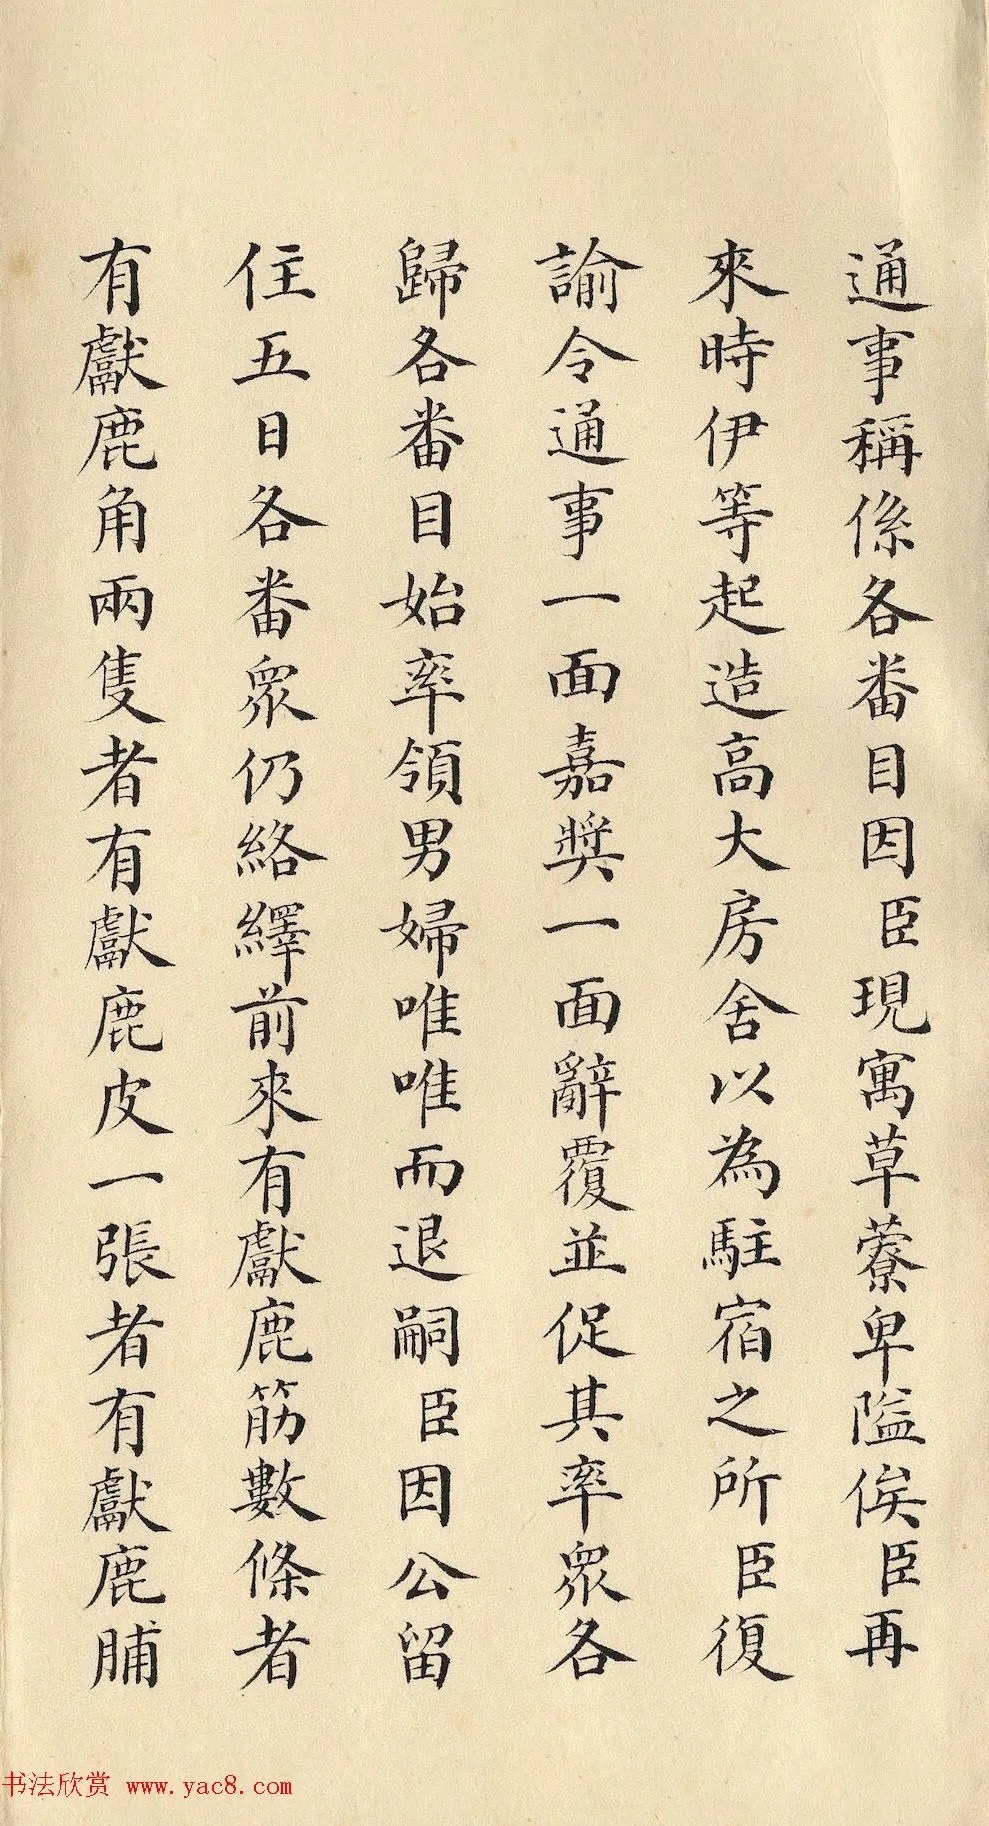 通事稱係各番目因臣現寓草藔卑隘俟臣再
來時伊等起造高大房舍以為駐宿之所臣復
諭令通事一面嘉奬一面辭覆並促其率眾各
歸各番目始率領男婦唯唯而退嗣臣因公留
住五日各番眾仍絡繹前來有獻鹿筋數條者
有獻鹿角兩隻者有獻鹿皮一張者有獻鹿脯
书法欣赏 www.yac8.com